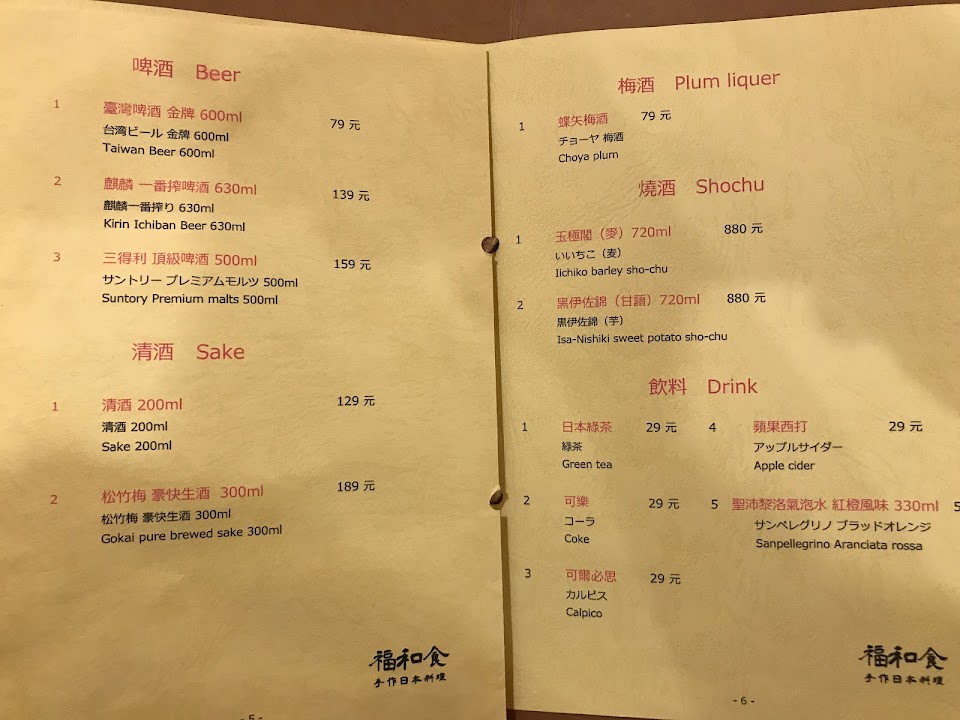 啤酒 Beer
1 臺灣啤酒 金牌 600ml 79 元
台湾ビール 金牌 600ml
Taiwan Beer 600ml
2 麒麟 一番搾啤酒 630ml 139 元
麒麟一番搾り 630ml
Kirin Ichiban Beer 630ml
3 三得利 頂級啤酒 500ml 159 元
サントリー プレミアムモルツ 500ml
Suntory Premium malts 500ml
清酒 Sake
1 清酒 200ml 129 元
清酒 200ml
Sake 200ml
2 松竹梅 豪快生酒 300ml 189 元
松竹梅 豪快生酒 300ml
Gokai pure brewed sake 300ml
福和食
手作日本料理
- 5 -
梅酒 Plum liquer
1 蝶矢梅酒 79 元
チョーヤ 梅酒
Choya plum
燒酒 Shochu
1 玉極閣（麥）720ml 880 元
いいちこ（麦）
Iichiko barley sho-chu
2 黑伊佐錦（甘藷）720ml 880 元
黒伊佐錦（芋）
Isa-Nishiki sweet potato sho-chu
飲料 Drink
1 日本綠茶 29 元
緑茶
Green tea
2 可樂 29 元
コーラ
Coke
3 可爾必思 29 元
カルピス
Calpico
4 蘋果西打 29 元
アップルサイダー
Apple cider
5 聖沛黎洛氣泡水 紅橙風味 330ml
サンペレグリノ ブラッドオレンジ
Sanpellegrino Aranciata rossa
福和食
手作日本料理
- 6 -